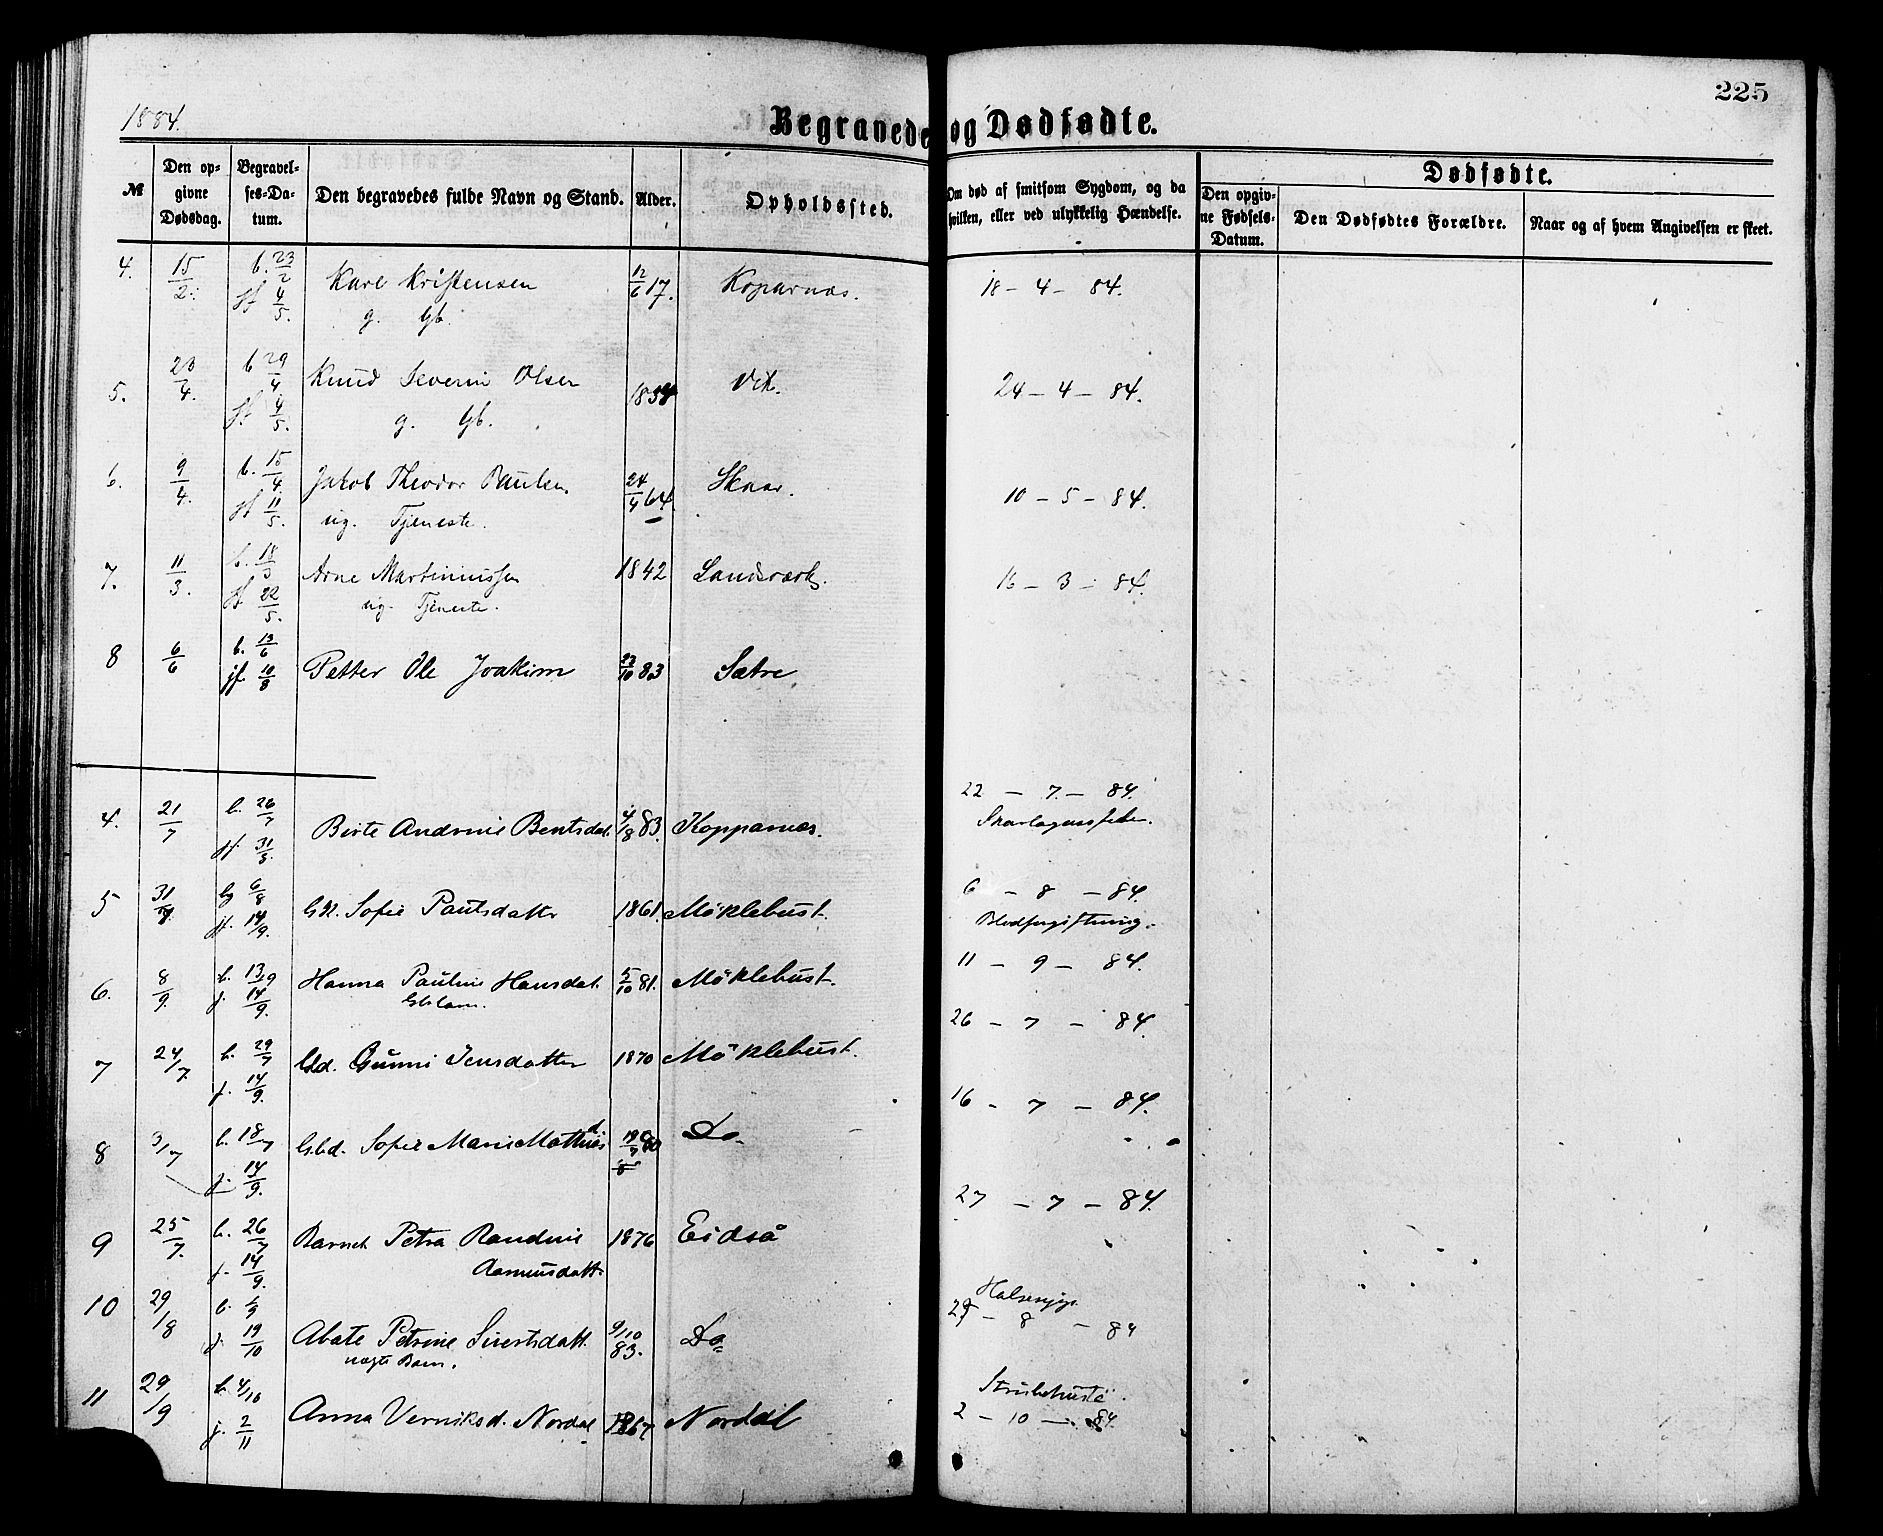 225
1884.
Begravede og Dødfødte.
№
Den opgivne Dødsdag.
Begravelses-Datum.
Den begravedes fulde Navn og Stand.
Alder.
Opholdssted.
Om død af smitsom Sygdom, og da hvilken, eller ved ulykkelig Hændelse.
Dødfødte.
Den opgivne Fødsels-Datum.
Den Dødfødtes Forældre.
Naar og af hvem Angivelsen er skeet.
4. 15/2. b. 23/2 Karl Kristensen 12/6 17. Koparnæs. 18 - 4 - 84.
jf 4/5. g. Gb.
5. 20/4. b 29/4 Knud Severin Olsen 1834 Vik. 24 - 4 - 84.
jf. 4/5. g. Gb.
6. 9/4. b. 15/4 Jakob Theodor Paulsen. 24/4 64. Skaar. 10 - 5 - 84.
jf 11/5. ug. Tjeneste.
7. 11/3. b. 18/3 Arne Martinussen 1842 Landsværk. 16 - 3 - 84.
jf. 22/5. ug. Tjeneste.
8 6/6 b. 13/6 Petter Ole Joakim 23/10 83 Sætre
jf. 10/8
4. 21/7 b. 26/7 Birte Andrine Bentsdat. 4/8 83. Kopparnæs. 22 - 7. - 84.
jf. 31/8. Skarlagensfeber.
5 31/7. bg 6/8 Gk. Sofie Paulsdattr 1861. Möklebust. 6 - 8 - 84.
jf. 14/9. Blodforgiftning.
6. 8/9. b. 13/9 Hanna Pauline Hansdat. 5/10 81. Möklebust. 11 - 9 - 84.
j. 14/9.
7 24/7 b. 29/7 Gbd. Gunni Jensdatter 1870 Möklebust. 26 - 7 - 84
j. 14/9.
8 3/7 b. 18/7 Gbd. Sofie Marie Mathiasd. 19/7 80 Do 16 - 7 - 84.
j. 14/9.
9 25/7. b. 26/7 Barnet Petra Randine 1876 Eidså 27 - 7 - 84.
j. 14/9. Rasmusdatt.
10 29/8 b. 6/9 Abate Petrine Sivertsdatt. 9/10 83. Do 29 - 8 - 84
j. 19/10 uægte Barn. Halsesyge
11 29/9 b. 4/10 Anna Verniksd. Nordal 1867 Nordal 2 - 10 - 84.
j. 2/11 Strubehoste.